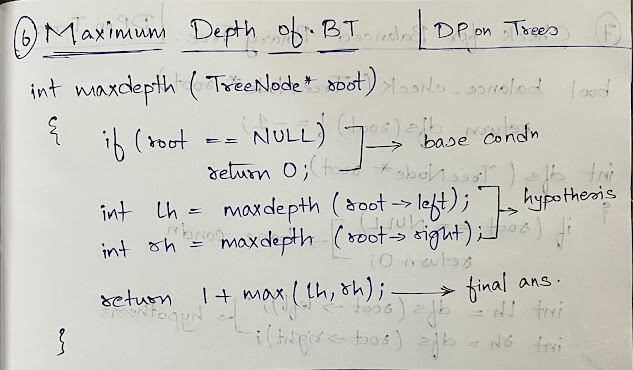 ⑥ Maximum Depth of BT | DP on Trees
int maxdepth ( TreeNode* root)
{
if (root == NULL) → base condn
return 0;
int lh = maxdepth (root → left); → hypothesis
int rh = maxdepth (root → right);
return 1 + max (lh, rh); → final ans.
}